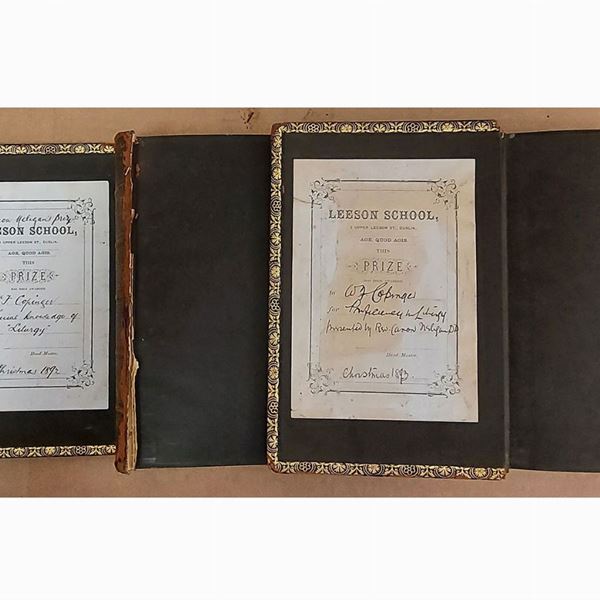 Neligan's Prize
SON SCHOOL,
UPPER LEESON ST., DUBLIN.
AGE, QUOD AGIS.
THIS
PRIZE
HAS BEEN AWARDED
Copinger
Knowledge of
"Liturgy"
Head Master.
Christmas 1892
LEESON SCHOOL,
UPPER LEESON ST., DUBLIN.
AGE, QUOD AGIS.
THIS
PRIZE
HAS BEEN AWARDED
to W J Copinger
for Proficiency in Liturgy
presented by Rev. Canon Neligan DD
Head Master.
Christmas 1893